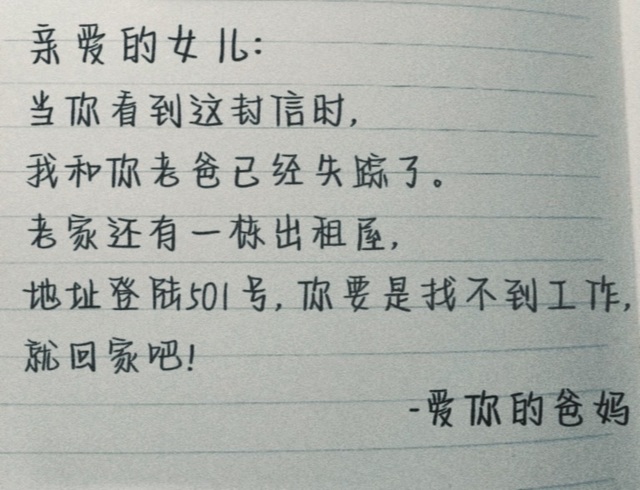 亲爱的女儿:
当你看到这封信时,
我和你老爸已经失踪了。
老家还有一栋出租屋,
地址登陆501号,你要是找不到工作,
就回家吧!
-爱你的爸妈